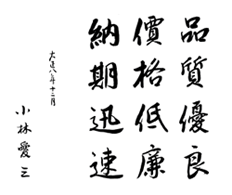 品質優良
價格低廉
納期迅速
大正八年十二月
小林愛三